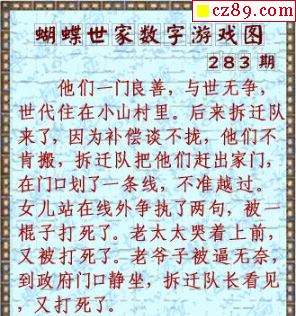 cz89.com
蝴蝶世家数字游戏图
283期
他们一门良善，与世无争，
世代住在小山村里。后来拆迁队
来了，因为补偿谈不拢，他们不
肯搬，拆迁队把他们赶出家门，
在门口划了一条线，不准越过。
女儿站在线外争执了两句，被一
棍子打死了。老太太哭着上前，
又被打死了。老爷子被逼无奈，
到政府门口静坐，拆迁队长看见
，又打死了。